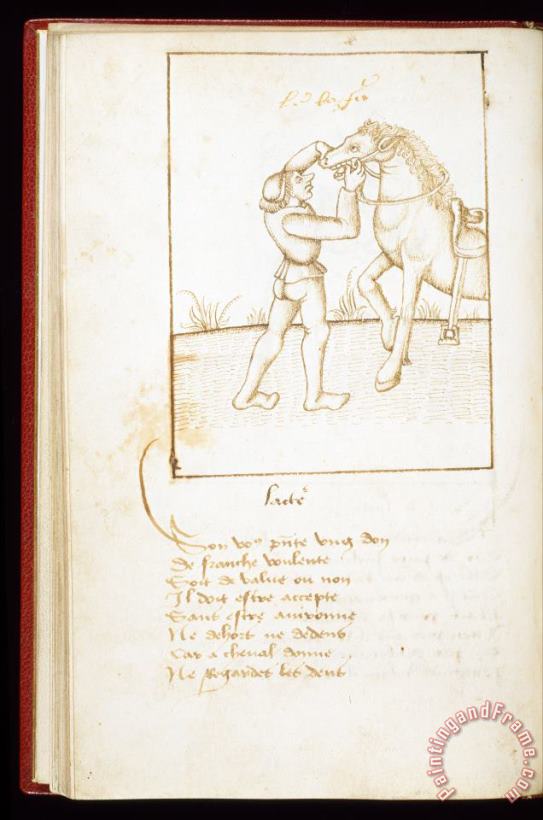 lacte
Son vo9 pnte ung don
De franche voulente
Soit de value ou non
Il doit estre accepte
Sans estre
Ne dehors ne dedens
Car a cheval donne
Ne regardez les dens
PaintingandFrame.com